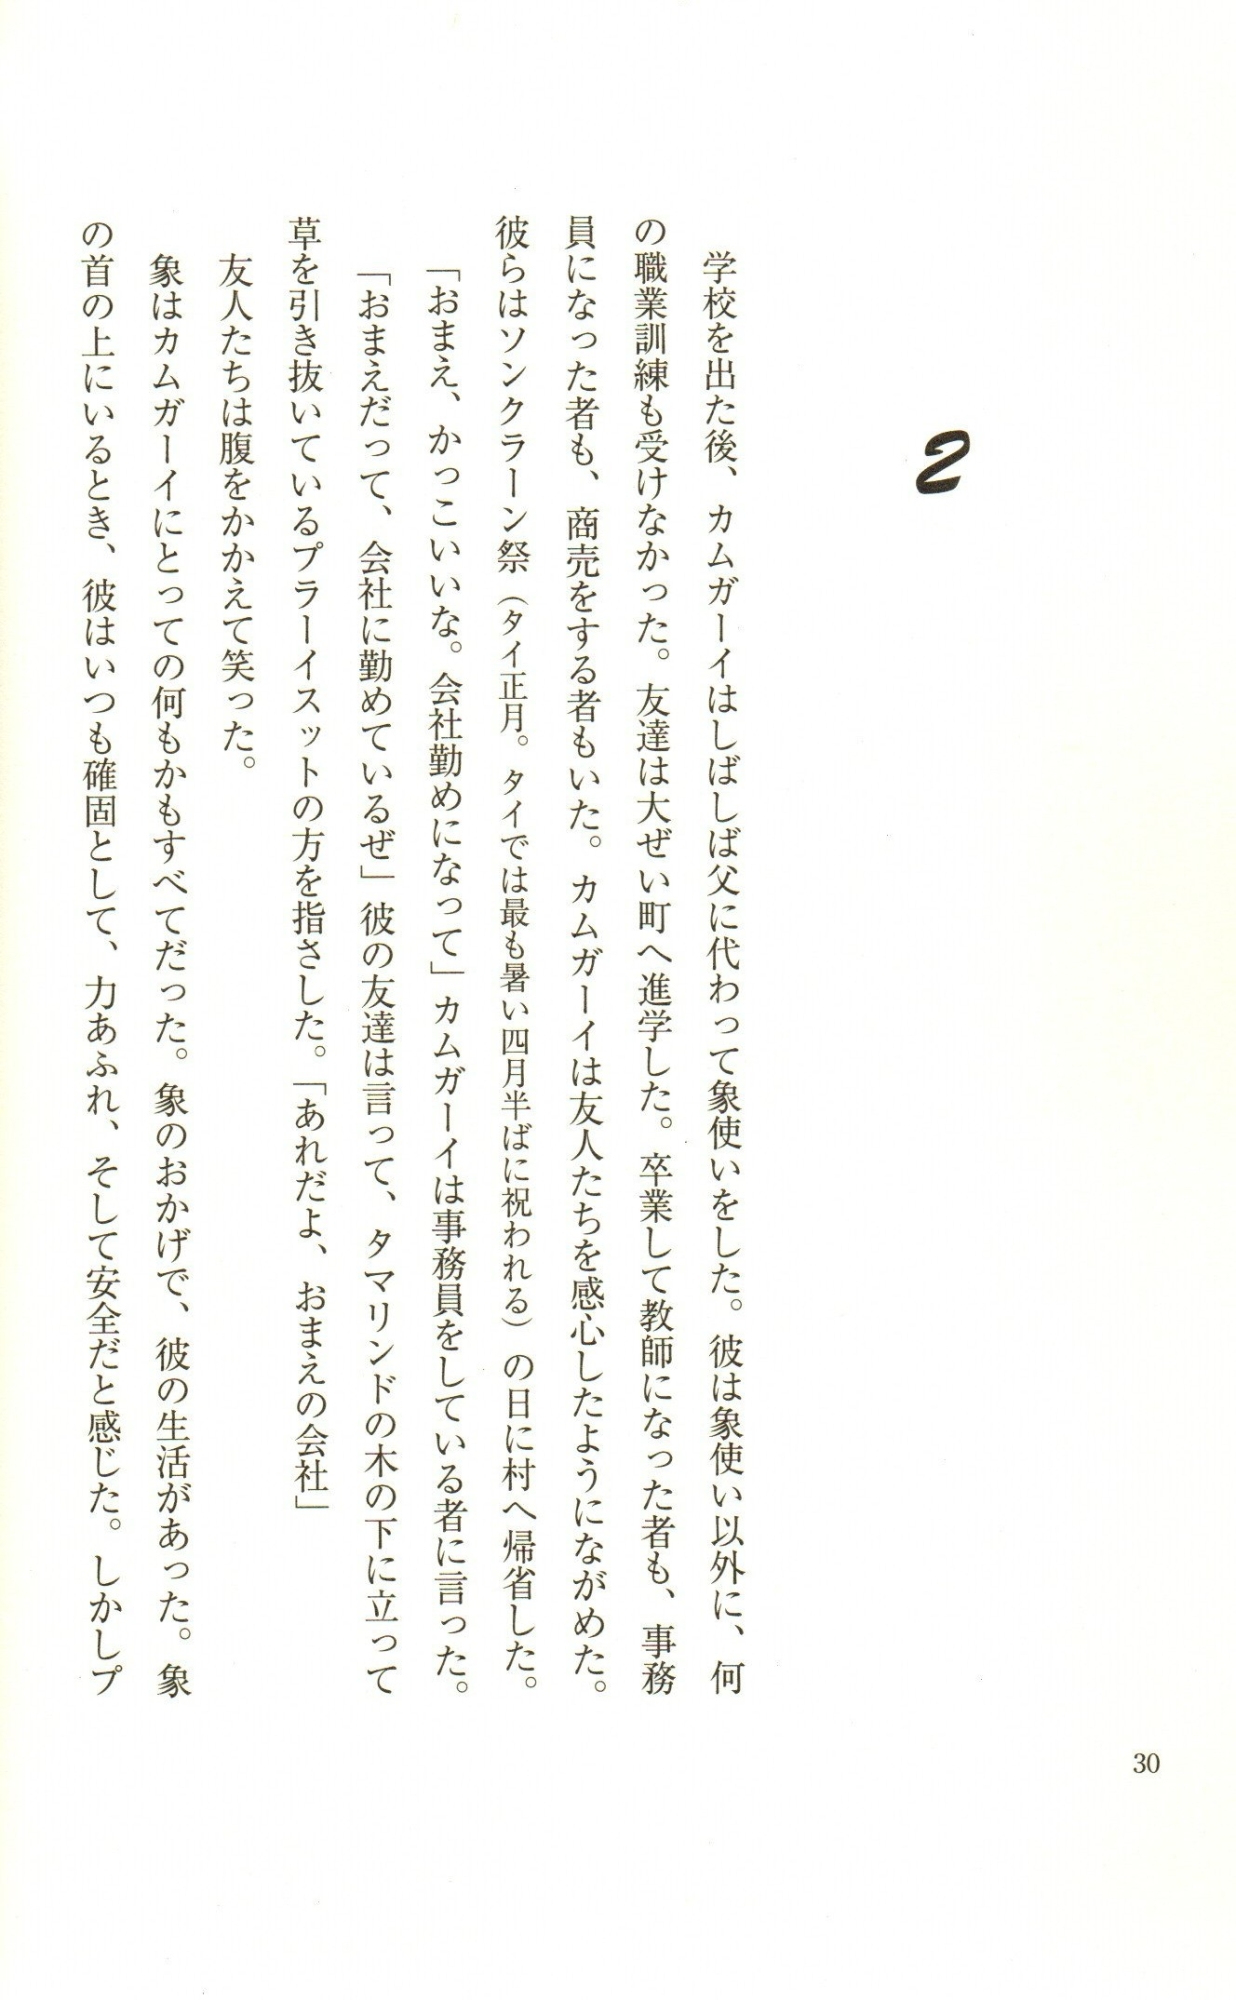 2
学校を出た後、カムガーイはしばしば父に代わって象使いをした。彼は象使い以外に、何
の職業訓練も受けなかった。友達は大ぜい町へ進学した。卒業して教師になった者も、事務
員になった者も、商売をする者もいた。カムガーイは友人たちを感心したようにながめた。
彼らはソンクラーン祭（タイ正月。タイでは最も暑い四月半ばに祝われる）の日に村へ帰省した。
「おまえ、かっこいいな。会社勤めになって」カムガーイは事務員をしている者に言った。
「おまえだって、会社に勤めているぜ」彼の友達は言って、タマリンドの木の下に立って
草を引き抜いているプラーイスットの方を指さした。「あれだよ、おまえの会社」
友人たちは腹をかかえて笑った。
象はカムガーイにとっての何もかもすべてだった。象のおかげで、彼の生活があった。象
の首の上にいるとき、彼はいつも確固として、力あふれ、そして安全だと感じた。しかしプ
30